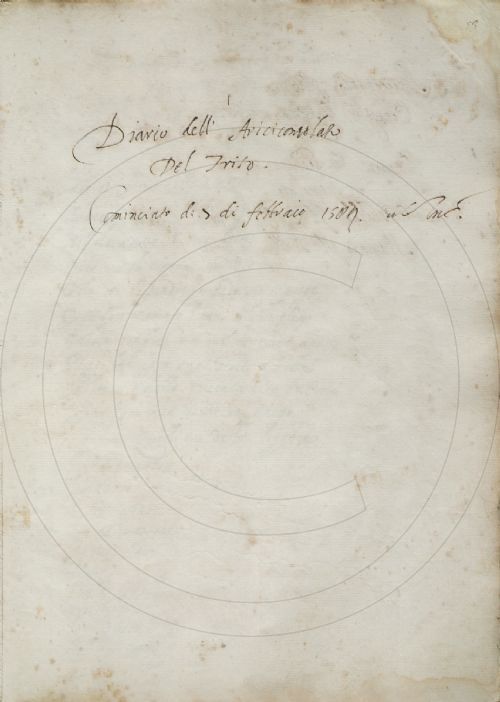 Diario dell' Arciconsolato
Del Trito.
Cominciato di 7 di febbraio 1589.